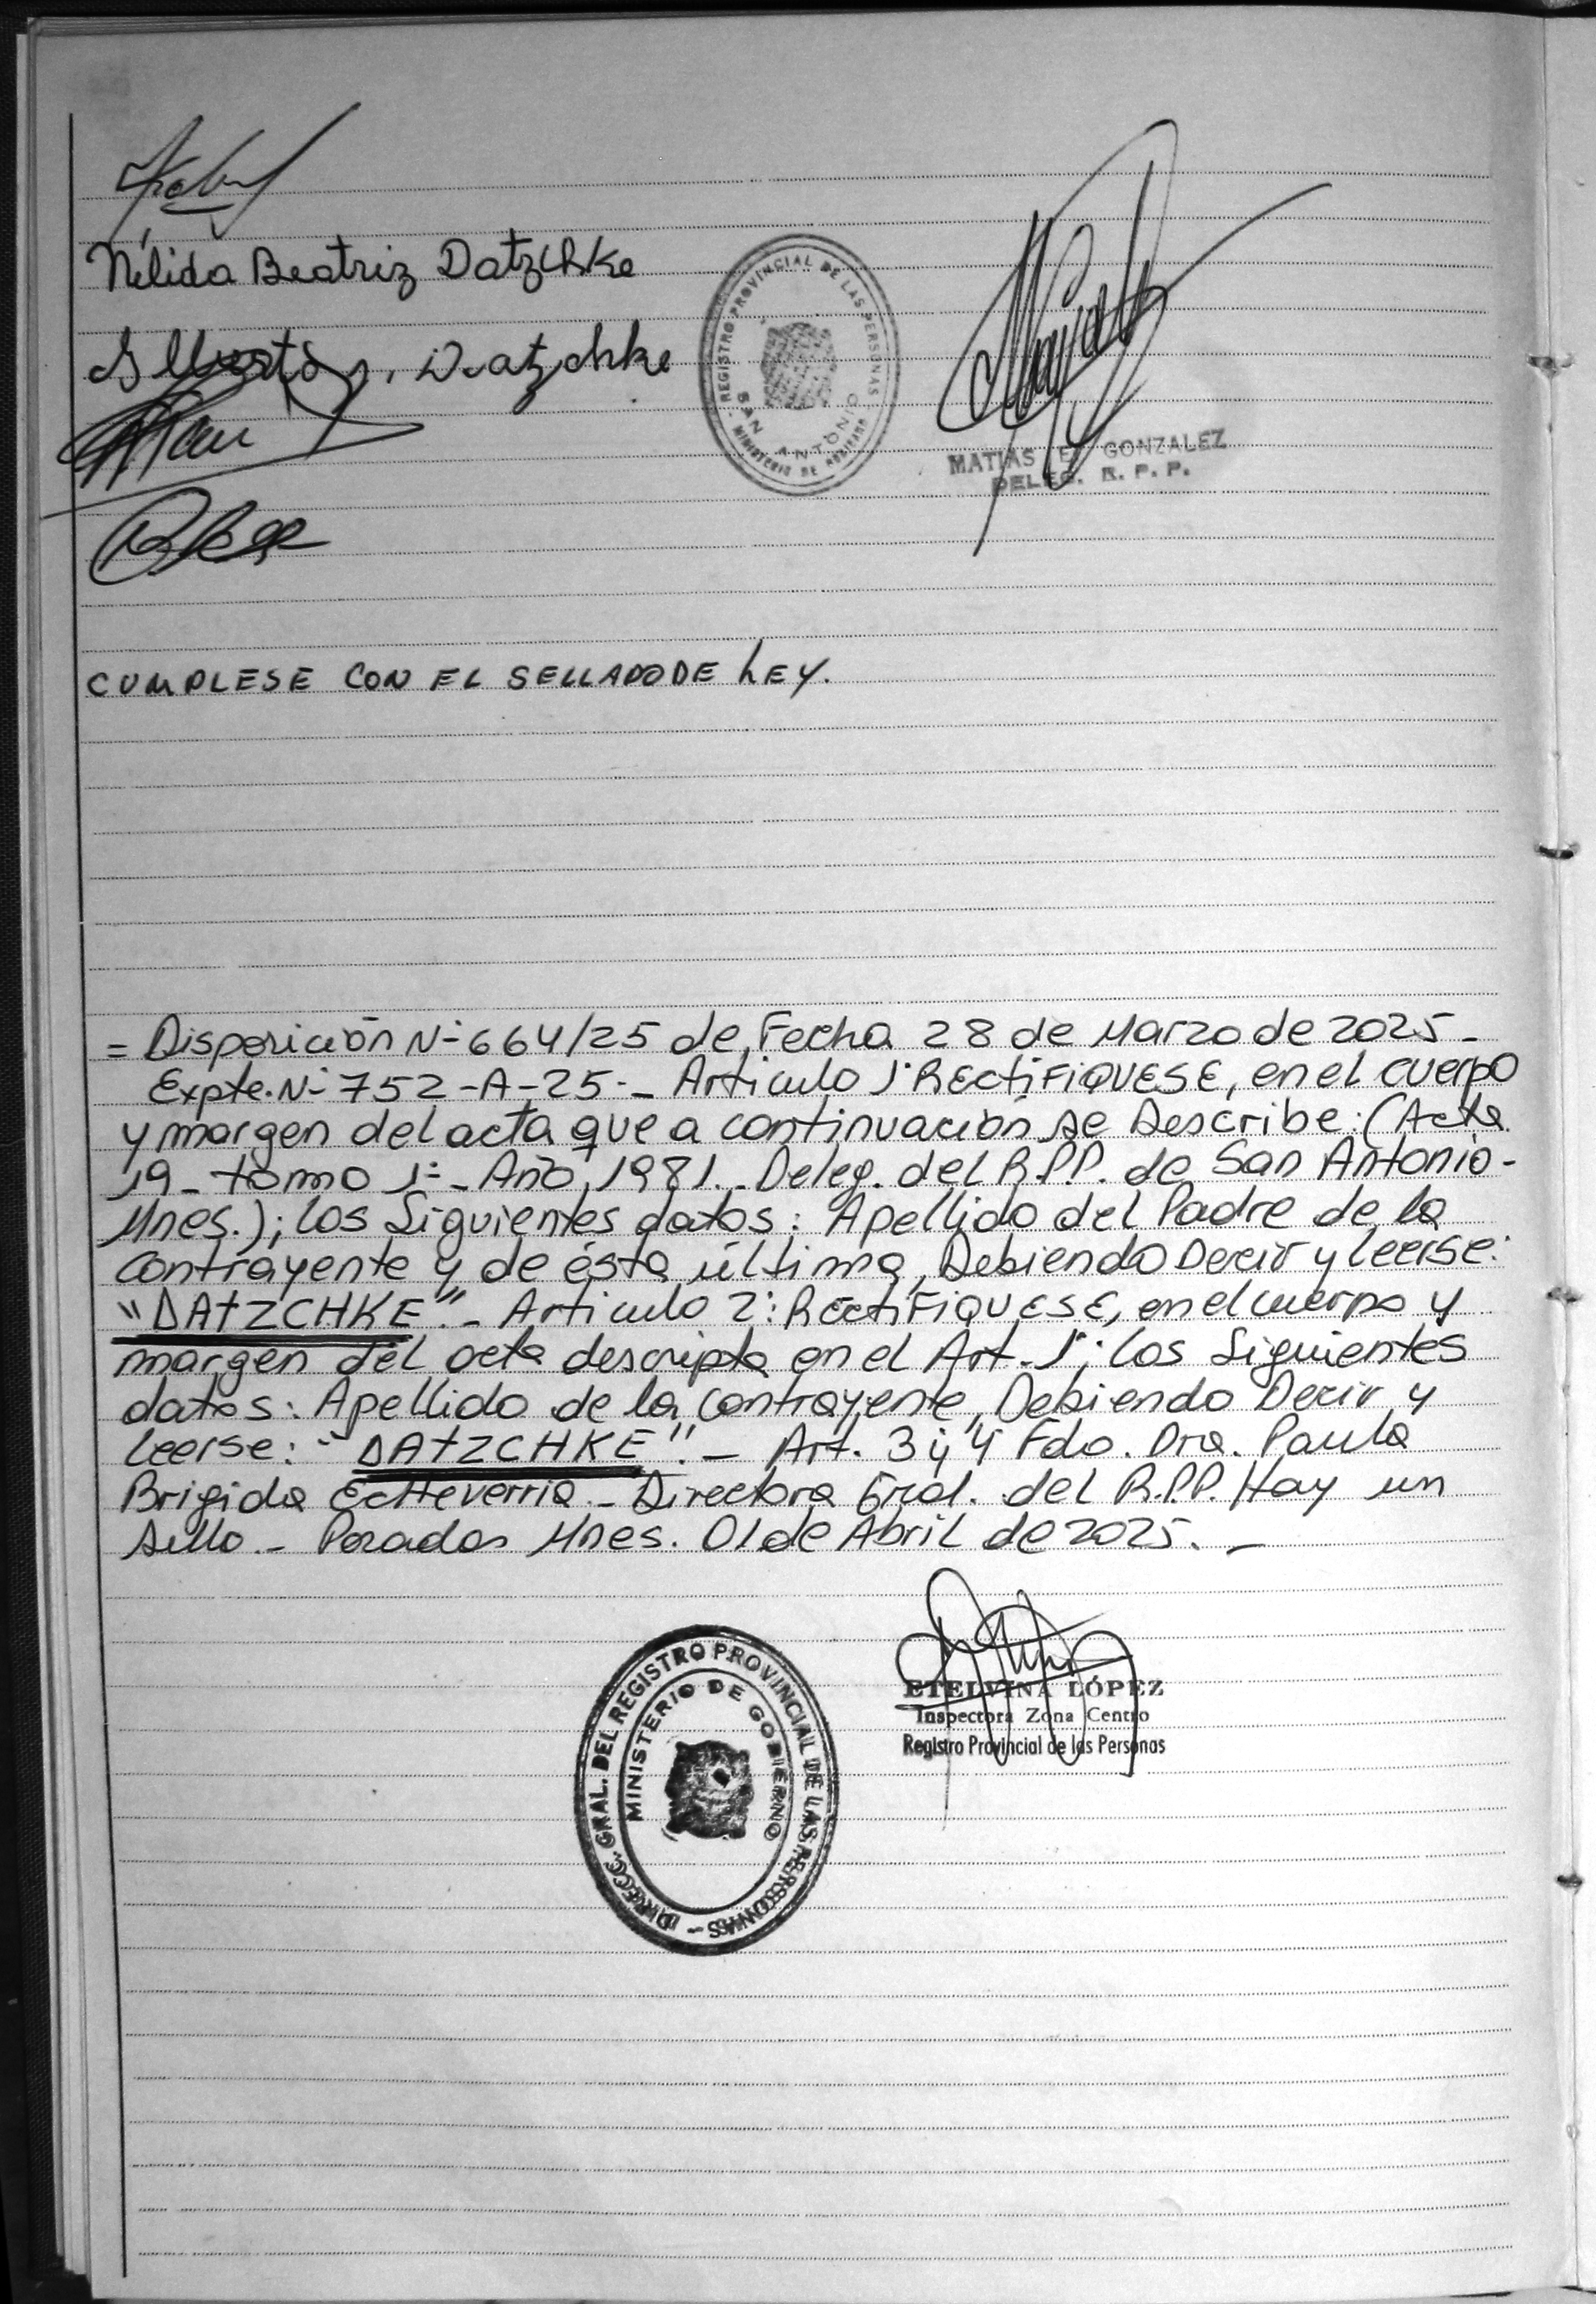 Nélida Beatriz Datzchke
Datzchke
REGISTRO PROVINCIAL DE LAS PERSONAS
SAN ANTONIO
MINISTERIO DE
MATIAS E. GONZALEZ
DELEG. R. P. P.
CUMPLESE CON EL SELLADO DE LEY.
= Disposición N- 664/25 de Fecha 28 de Marzo de 2025 -
Expte. N- 752 - A - 25 - - Articulo 1° RECTIFIQUESE, en el cuerpo
y margen del acta que a continuación se Describe: (Acta
19 - tomo 1° - Año 1981. - Deleg. del R.P.P. de San Antonio -
Mnes.); los Siguientes datos: Apellido del Padre de la
contrayente y de ésta última, Debiendo Decir y leerse:
"DATZCHKE". - Articulo 2: RECTIFIQUESE, en el cuerpo y
margen del acta descripta en el Art. 1°; los Siguientes
datos: Apellido de la contrayente, Debiendo Decir y
leerse: "DATZCHKE". - Art. 3 y 4 Fdo. Dra. Paula
Brigida Echeverria - Directora Gral. del R.P.P. Hay un
sello. - Posadas Mnes. 01 de Abril de 2025. -
DIRECC. GRAL. DEL REGISTRO PROVINCIAL DE LAS PERSONAS -
MINISTERIO DE GOBIERNO
ETELVINA LÓPEZ
Inspectora Zona Centro
Registro Provincial de las Personas